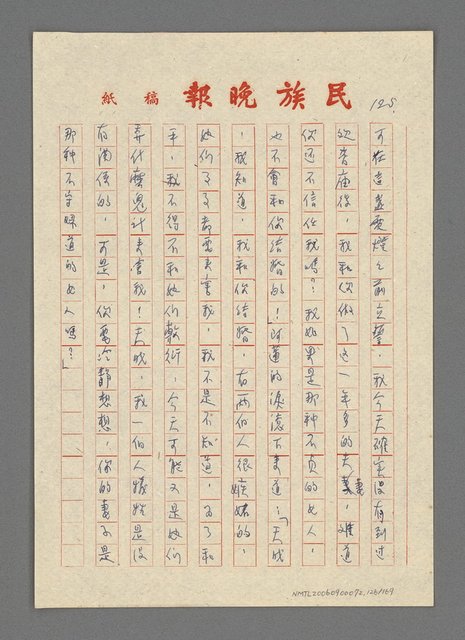 民族晚報 稿紙
125
可在這盞愛燈之前立誓,我今天確實沒有到過
地普庙後,我和你做了這一年多的夫妻,難道
你還不信任我嗎?我如果是那種不貞的女人,
也不會和你結婚的!阿蓮的淚流下來道:「天成
,我知道,我和你結婚,有兩個人很嫉妬的,
她們了了都要來害我,我不是不知道,為了和
平,我不得不和她們敷衍,今天可能又是她們
弄什麼鬼計來害我!天成,我一個人犧牲是沒
有關係的,可是,你要冷靜想想,你的妻子是
那種不守婦道的女人嗎?」
NMTL20060900072,126/169